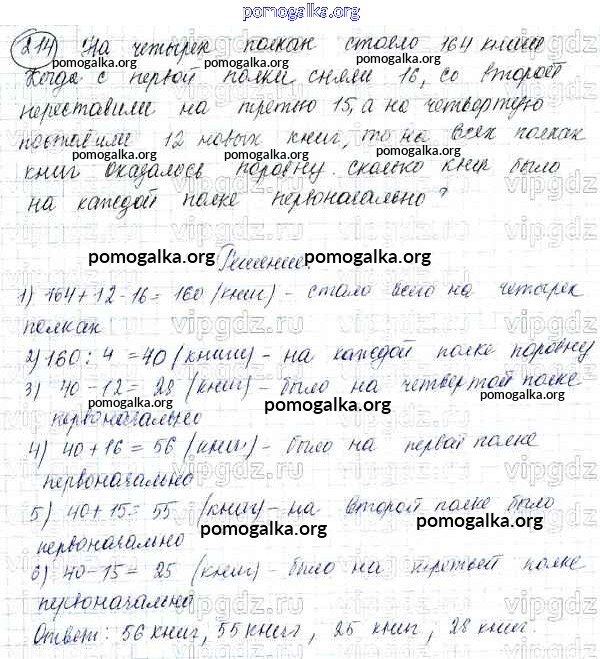 pomogalka.org
214) На четырех полках стояло 164 книги
Когда с первой полки сняли 16, со второй
переставили на третью 15, а на четвертую
поставили 12 новых книг, то на всех полках
pomogalka.org pomogalka.org pomogalka.org
книг оказалось поровну. Сколько книг было
на каждой полке первоначально?
pomogalka.org Решение: pomogalka.org
1) 164+12-16=160 (книг) - стало всего на четырех
полках
2) 160:4=40 (книги) - на каждой полке поровну
3) 40-12=28 (книг) - было на четвертой полке
первоначально
pomogalka.org pomogalka.org
4) 40+16=56 (книг) - было на первой полке
первоначально
pomogalka.org pomogalka.org
5) 40+15=55 (книг) - на второй полке было
первоначально
pomogalka.org pomogalka.org
6) 40-15=25 (книг) - было на третьей полке
первоначально
Ответ: 56 книг, 55 книг, 25 книг, 28 книг.
pomogalka.org